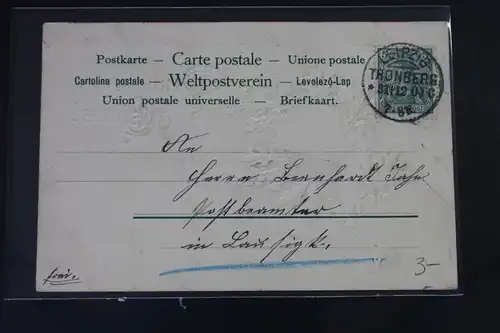 Postkarte — Carte postale — Unione postale
Cartolina postale — Weltpostverein — Levelező-Lap
Union postale universelle — Briefkaart.
LEIPZIG
THONBERG
* 31/12 01 C
7-8N
An
Herrn Bernhardt Jahn
Postbeamter
in Lausigk.
frei.
3-